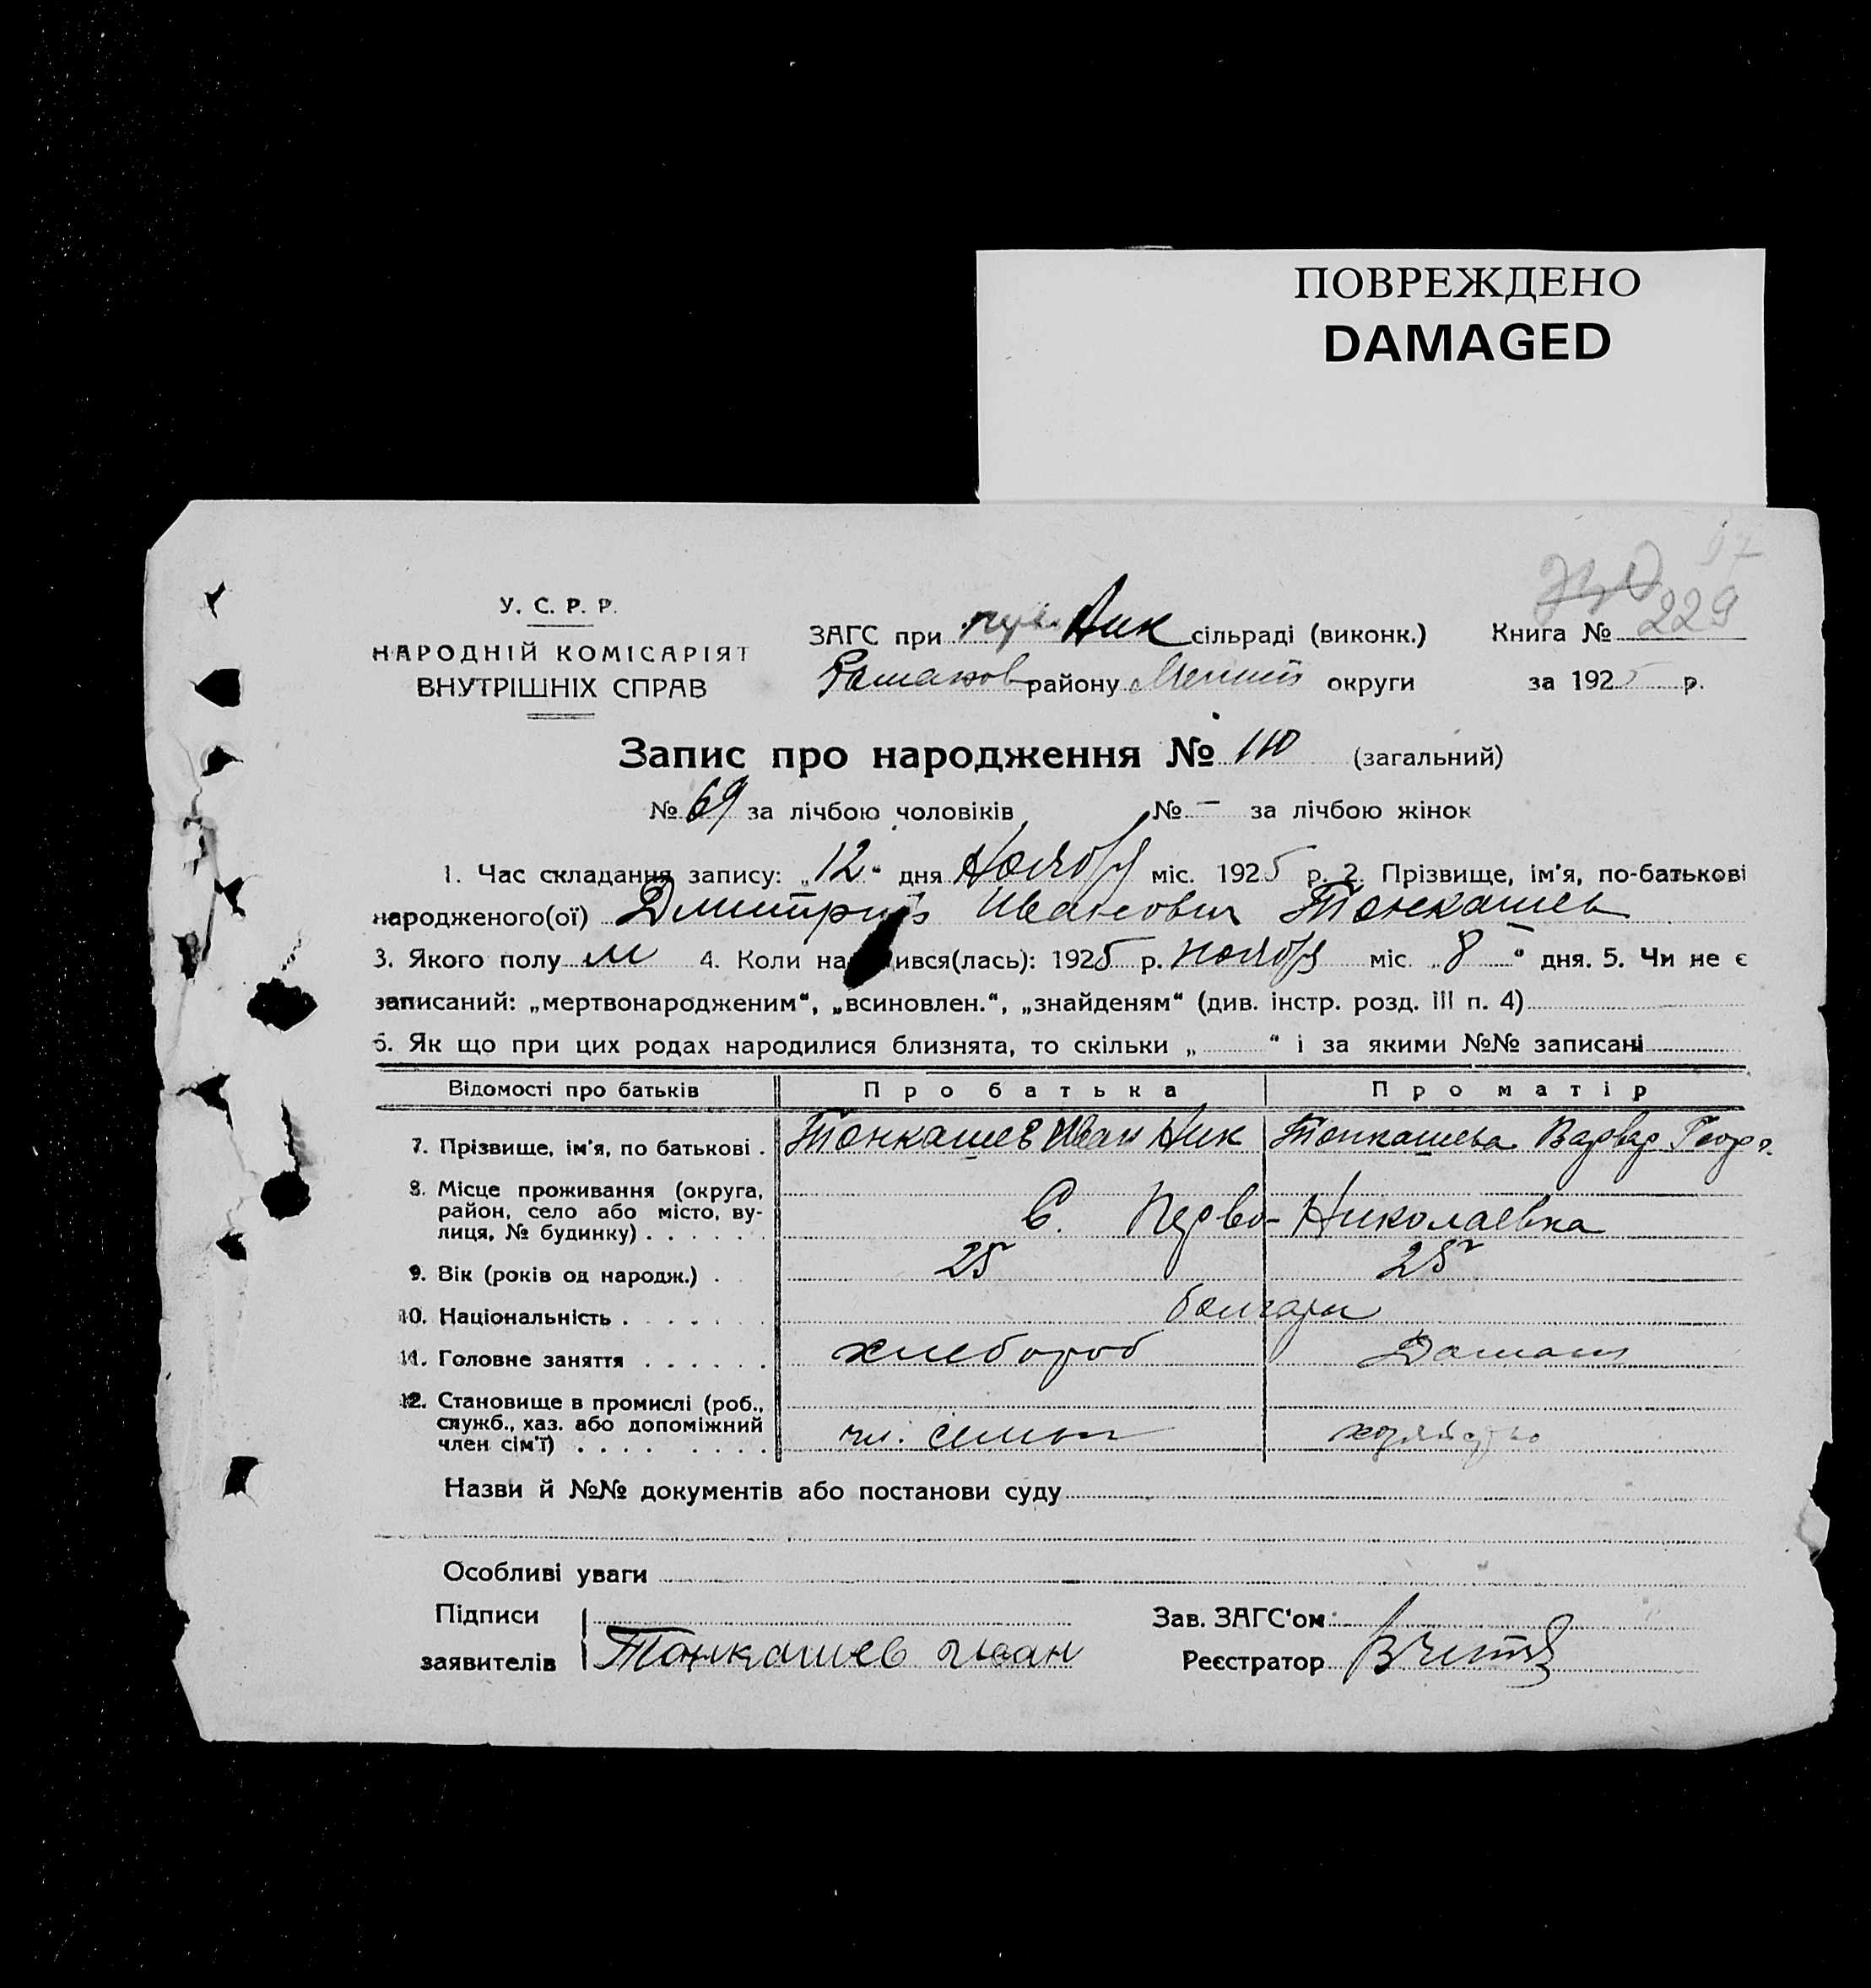 ПОВРЕЖДЕНО
DAMAGED
229
У. С. Р. Р.
НАРОДНІЙ КОМІСАРІЯТ
ВНУТРІШНІХ СПРАВ
ЗАГС при Ник сільраді (виконк.) Книга №
району округи за 1925 р.
Запис про народження № 110 (загальний)
№ 69 за лічбою чоловіків № — за лічбою жінок
1. Час складання запису: „12" дня Ноября міс. 1925 р. 2. Прізвище, ім'я, по-батькові
народженого(ої) Дмитрий Иванович Тонкашев
3. Якого полу м 4. Коли на ився(лась): 1925 р. ноября міс. „8" дня. 5. Чи не є
записаний: „мертвонародженим", „всиновлен.", „знайденям" (див. інстр. розд. III п. 4)
6. Як що при цих родах народилися близнята, то скільки „ " і за якими №№ записані
Відомості про батьків Про батька Про матір
7. Прізвище, ім'я, по батькові . Тонкашев Иван Ник Тонкашева Варвар Георг.
8. Місце проживання (округа,
район, село або місто, ву-
лиця, № будинку) . . . . . . С. Перво-Николаевка
9. Вік (років од народж.) . . 25 25
10. Національність . . . . . . болгары
11. Головне заняття . . . . . . хлебороб Домашн
12. Становище в промислі (роб.,
служб., хаз. або допоміжний
член сім'ї) . . . . . . . . чл. семьи хозяйство
Назви й №№ документів або постанови суду
Особливі уваги
Підписи Зав. ЗАГС'ом
заявителів Тонкашев Иван Реєстратор